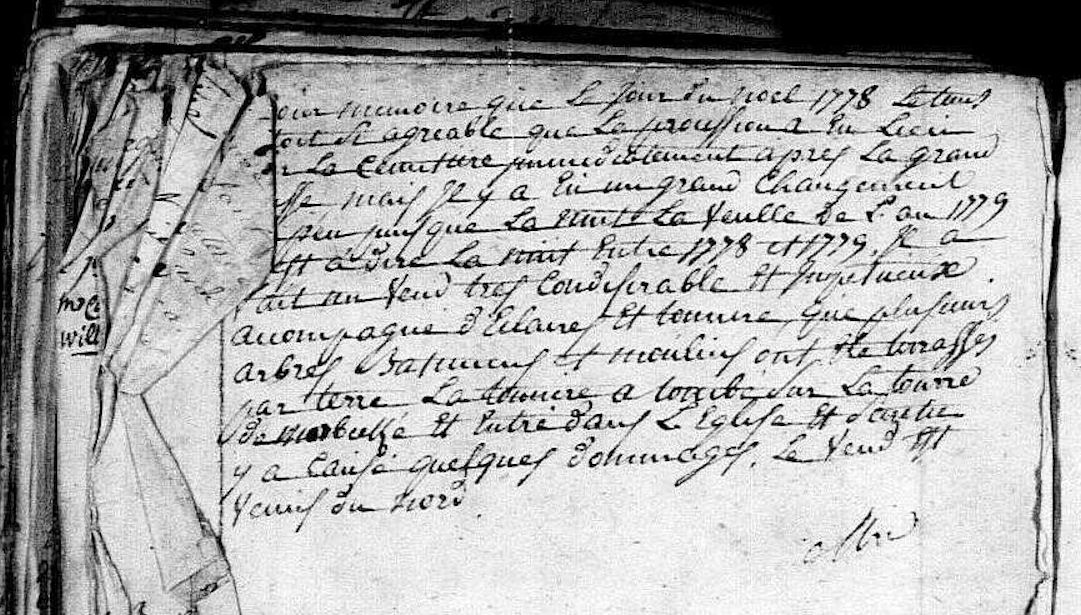 our memoire que Le jour du noel 1778 Le tems
toit Si agreable que La procession a Eu Lieu
La Cemittire immediatement apres La grand
sse mais Il y a Eu un grand Changement
peu jusque La nuit La Veulle De L'an 1779
est a dire La nuit Entre 1778 et 1779. Il a
fait un Vend tres Considerable Et Impetueux
acompagné d'Eclaires Et tonnere, que plusieurs
arbres Batimens et moulins ont Ete terasses
par terre La tonnere a tombé sur La tourre
De Et Entré dans L'Eglise Et
y a Causé quelques dommages. Le Vend Est
Venus du nord